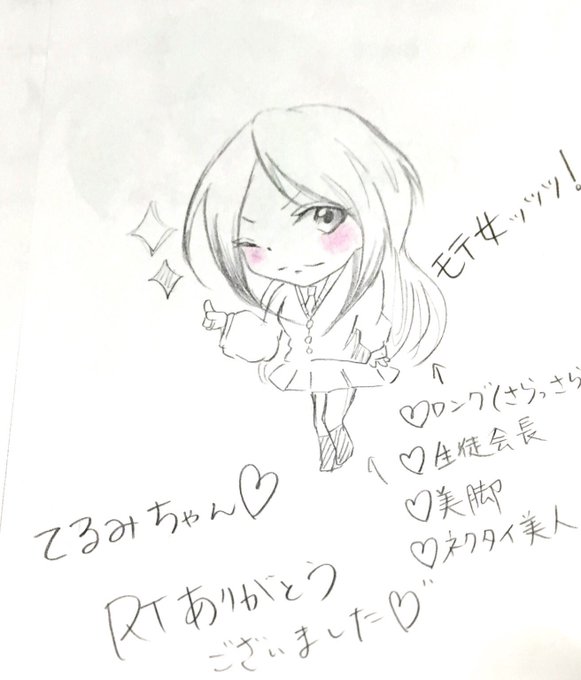 モテ女ッッッ!
↑
♡ロング(さらっさら
♡生徒会長
↑
♡美脚
♡ネクタイ美人
てるみちゃん♡
RTありがとう
ございました♡"